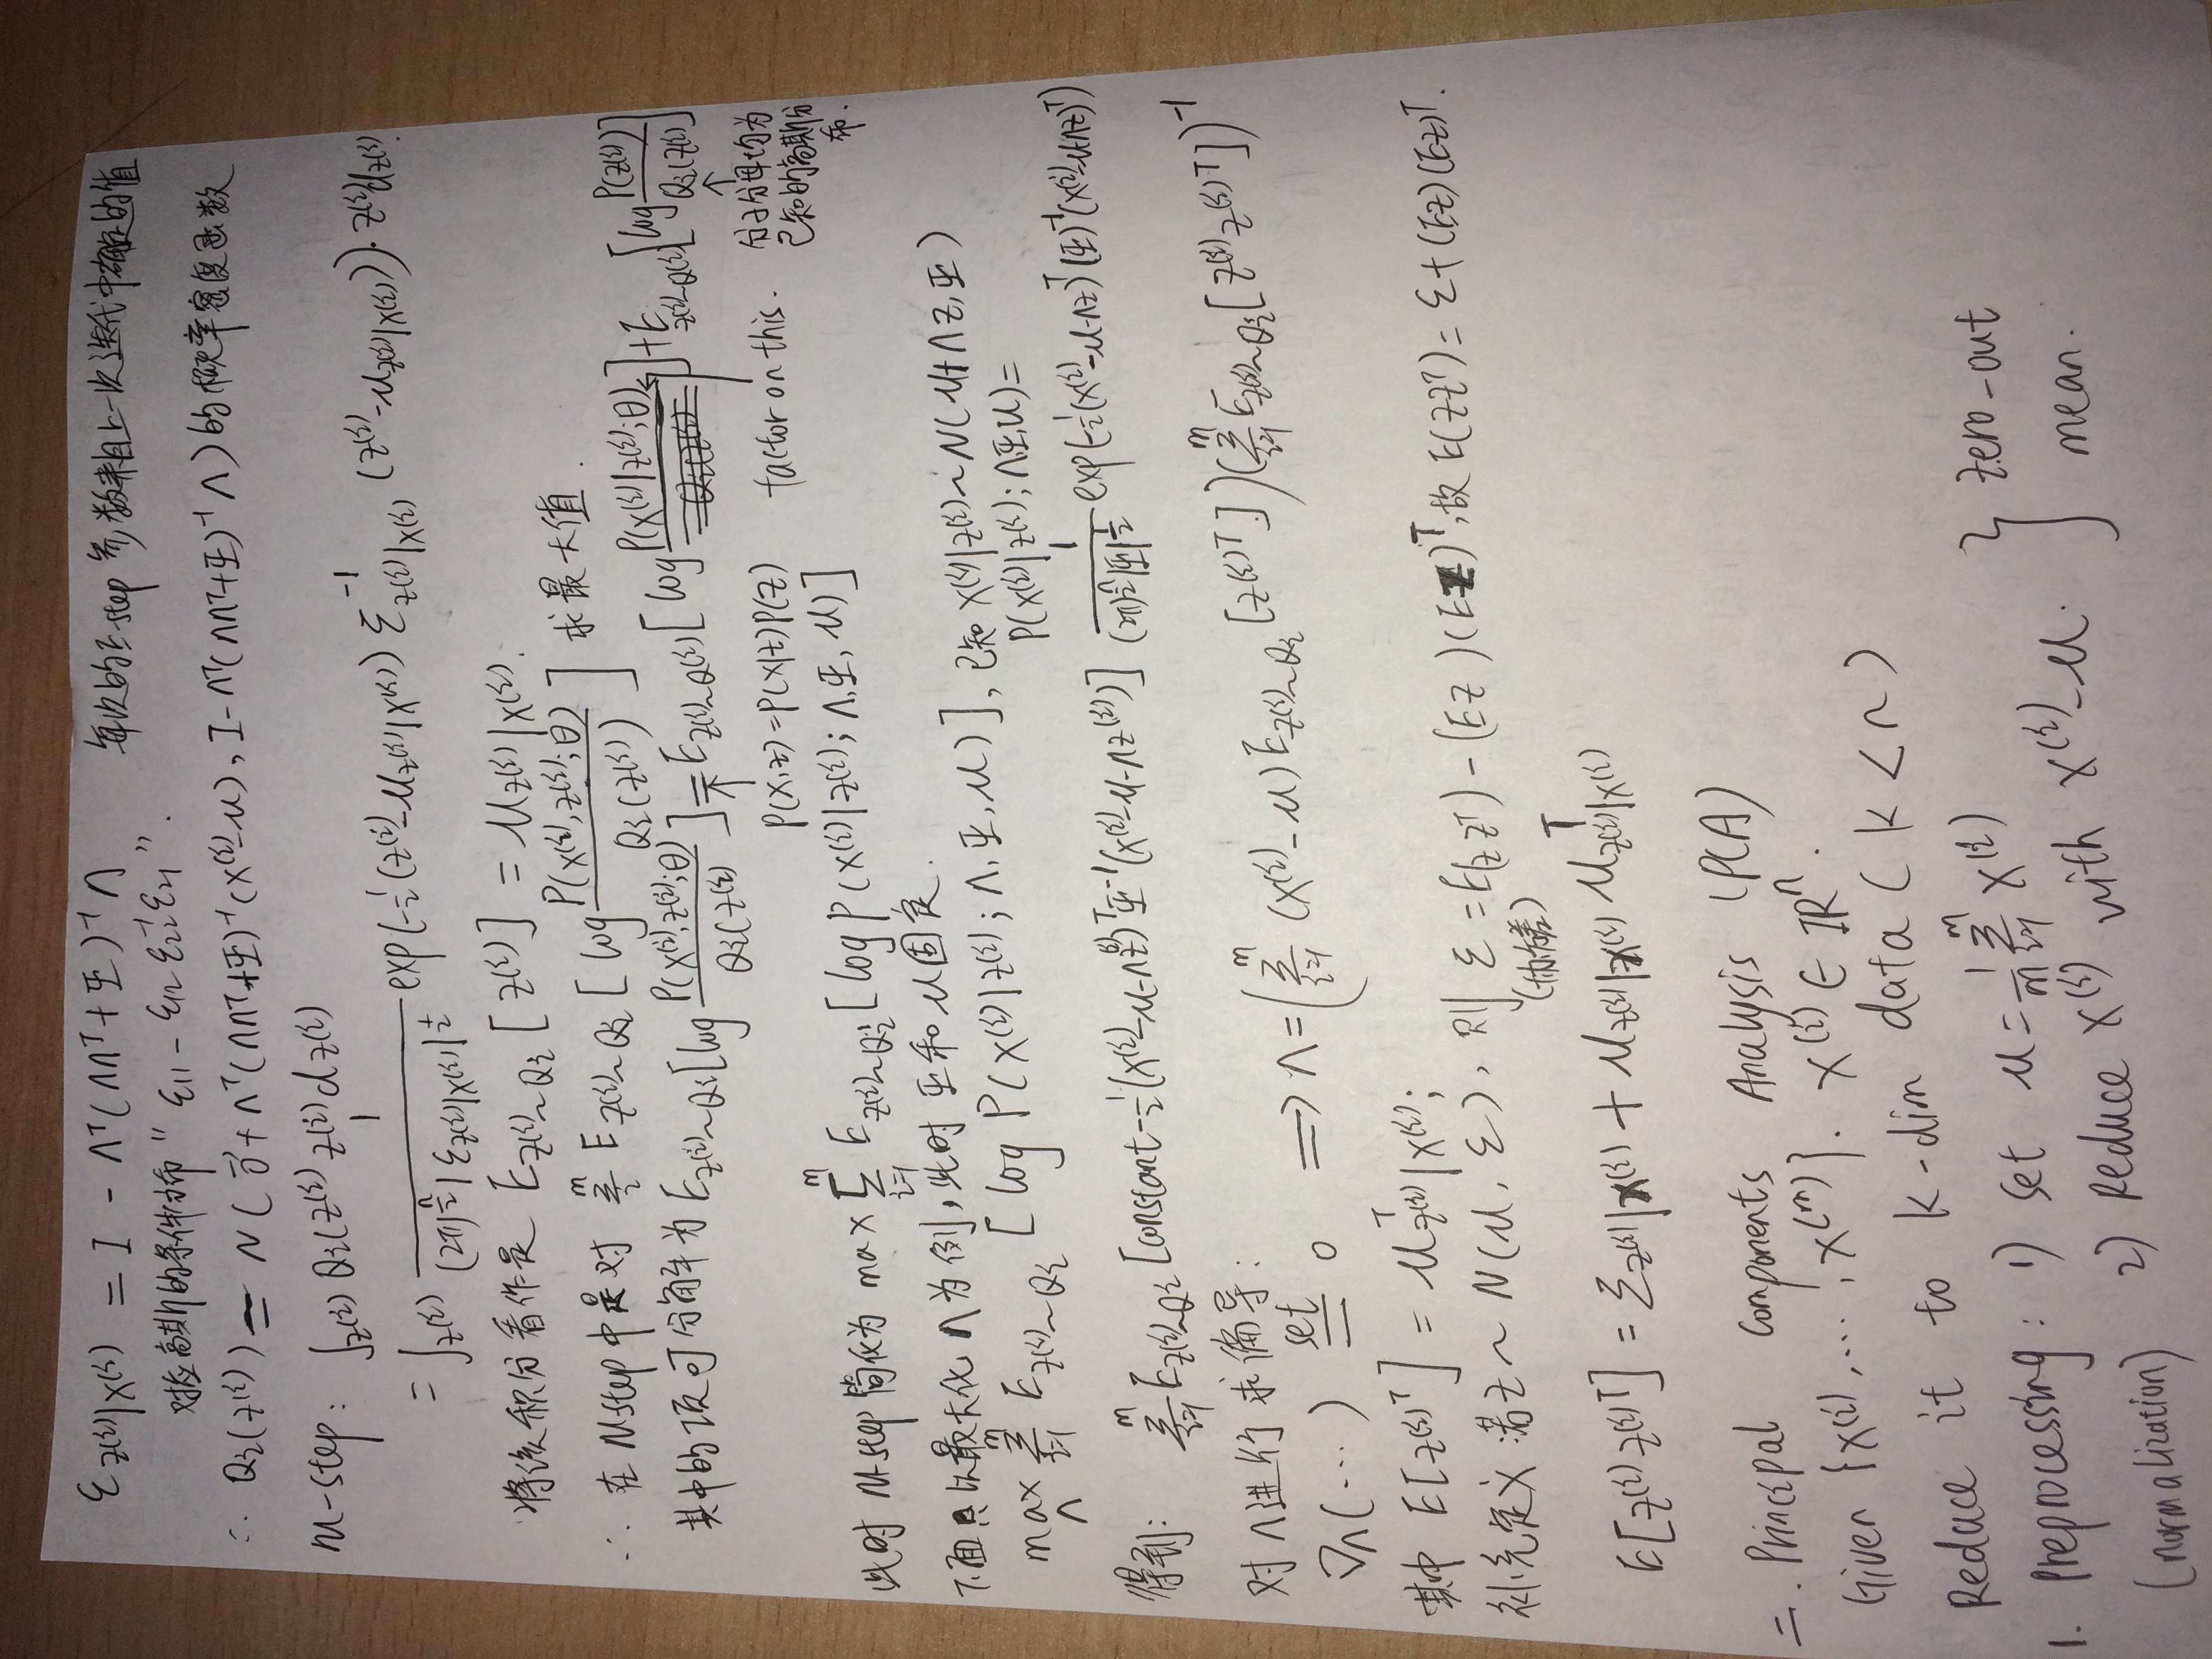 Σz(i)|x(i) = I - Λᵀ(ΛΛᵀ+Ψ)⁻¹Λ 每次的E-step参数来自上一次迭代中确定的值
对应高斯的条件分布"Σ11 - Σ12 Σ22⁻¹ Σ21".
∴ Qi(z(i)) = N(0⃗+Λᵀ(ΛΛᵀ+Ψ)⁻¹(x(i)-μ), I-Λᵀ(ΛΛᵀ+Ψ)⁻¹Λ)的概率密度函数
M-step: ∫z(i) Qi(z(i) z(i) dz(i)
= ∫z(i) 1/((2π)^(n/2) |Σz(i)|x(i)|^(1/2)) exp(-1/2(z(i)-μz(i)|x(i)) Σ⁻¹z(i)|x(i) (z(i)-μz(i)|x(i)))·z(i)dz(i)
将该积分看作是 Ez(i)~Qi [z(i)] = μz(i)|x(i).
∴ 在M-step中是对 Σᵢᵐ Ez(i)~Qi [log P(x(i),z(i);θ)/Qi(z(i))] 求最大值.
其中的项可分解为 Ez(i)~Qi[log P(x(i),z(i);θ)/Qi(z(i)] = Ez(i)~Q(i)[log P(x(i)|z(i);θ)] + Ez(i)~Q(i)[log P(z(i))/Qi(z(i))]
P(x,z)=P(x|z)P(z) factor on this. 分子分母均为
已知的高斯分
布.
此时M-step简化为 max Σᵢ₌₁ᵐ Ez(i)~Qi [log P(x(i)|z(i); Λ,Ψ,μ)]
下面只以最大化Λ为例,此时Ψ和μ固定.
max_Λ Σᵢ₌₁ᵐ Ez(i)~Qi [log P(x(i)|z(i); Λ,Ψ,μ)], 已知 x(i)|z(i)~N(μ+Λz,Ψ)
P(x(i)|z(i); Λ,Ψ,μ)=
得到: Σᵢ₌₁ᵐ Ez(i)~Qi [constant-1/2(x(i)-μ-Λz(i))ᵀΨ⁻¹(x(i)-μ-Λz(i))] 1/((2π)^(n/2)|Ψ|^(1/2)) exp(-1/2(x(i)-μ-Λz)ᵀ(Ψ)⁻¹(x(i)-μ-Λz)ᵀ)
对Λ进行求偏导:
∇Λ(...) set= 0 ⟹ Λ=(Σᵢ₌₁ᵐ (x(i)-μ)Ez(i)~Qi [z(i)ᵀ])(Σᵢ₌₁ᵐ Ez(i)~Qi[z(i)z(i)ᵀ])⁻¹
其中 E[z(i)ᵀ] = μᵀz(i)|x(i);
补充定义:若z~N(μ, Σ), 则 Σ=E(zzᵀ)-(Ez)(Ez)ᵀ,故E(zzᵀ)=Σ+(Ez)(Ez)ᵀ.
(协方差)
E[z(i)z(i)ᵀ] = Σz(i)|x(i) + μz(i)|x(i) μᵀz(i)|x(i)
二. Principal Components Analysis (PCA)
Given {x(i),...,x(m)}. x(i) ∈ ℝⁿ.
Reduce it to k-dim data (k<n)
1. Preprocessing: 1) set μ=1/m Σᵢ₌₁ᵐ x(i) } zero-out
(normalization) 2) Reduce x(i) with x(i)-μ. mean.